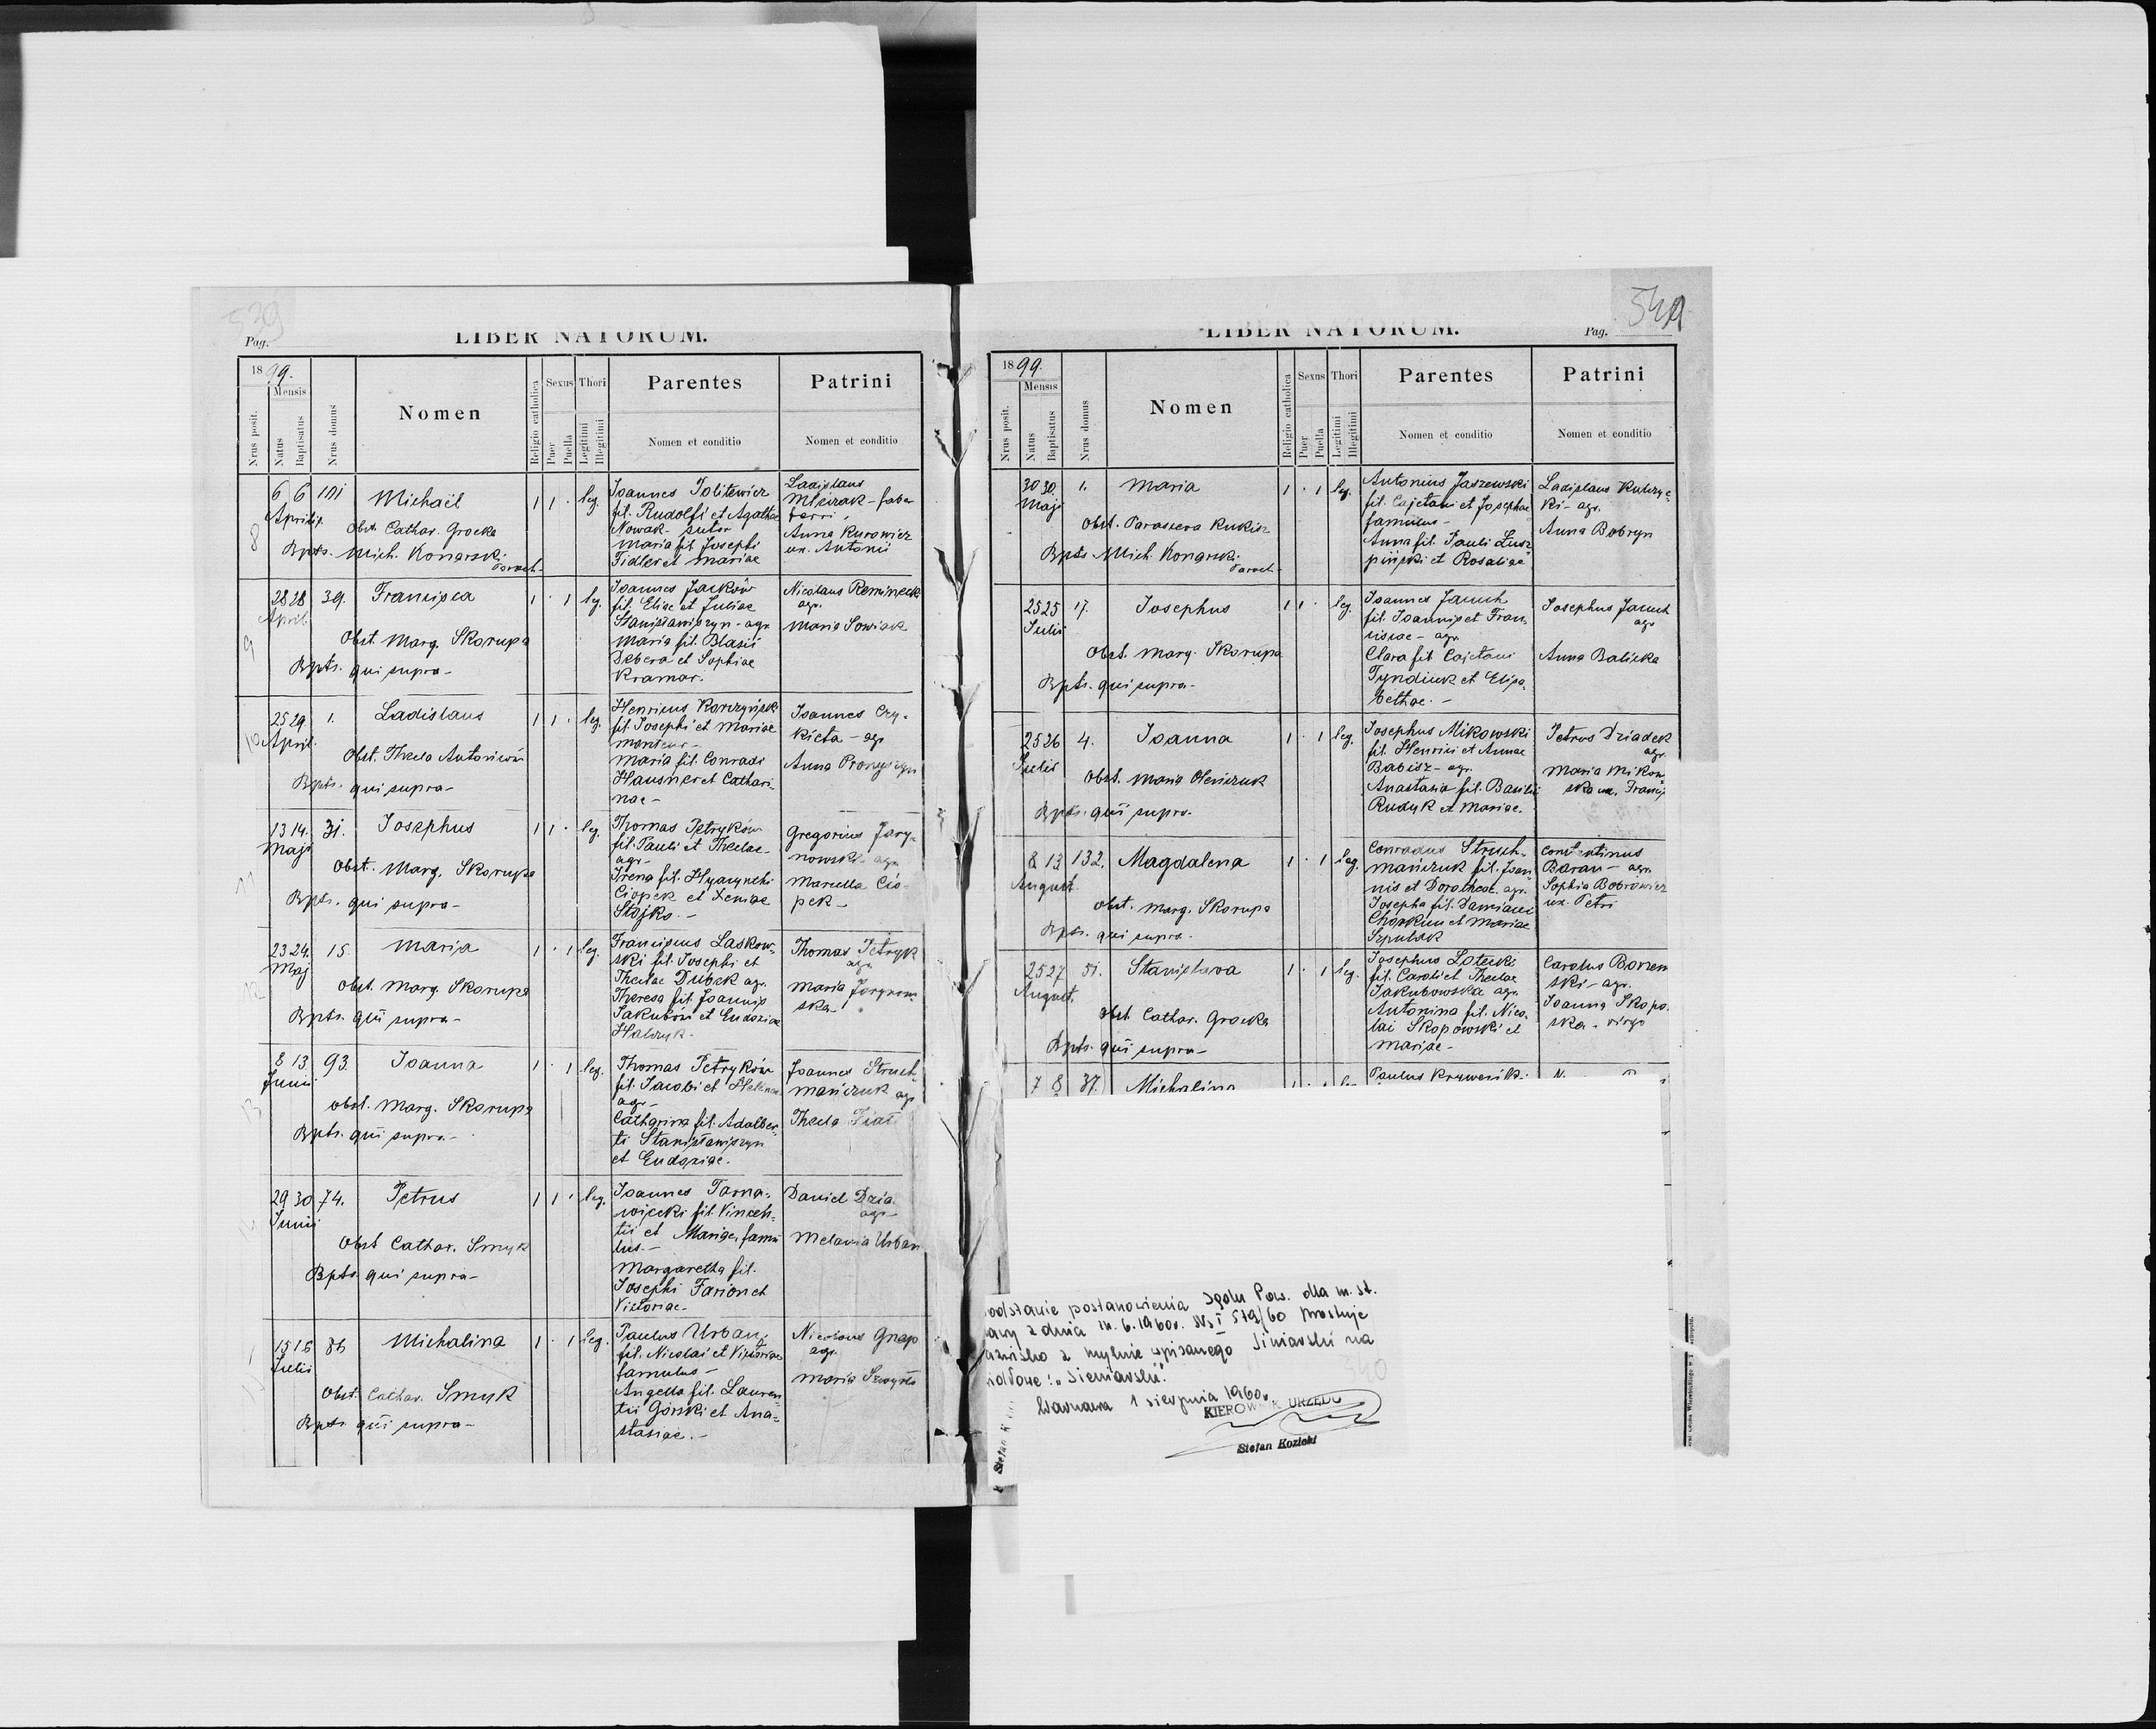 529
Pag.
LIBER NATORUM.
1899.
Nrus posit.
Mensis
Natus
Baptisatus
Nrus domus
Nomen
Religio catholica
Sexus
Puer
Puella
Thori
Legitimi
Illegitimi
Parentes
Nomen et conditio
Patrini
Nomen et conditio
8
6 6 111
Aprilis
Michaël
Obst. Cathar. Grocka
Bpts. Mich. Konarski
Paroch.
1 1 · leg.
Joannes Politewicz
fil. Rudolfi et Agathae
Nowak - sutor
Maria fil. Josephi
Fidler et Mariae
Ladislaus
Mleczak - faber
ferri
Anna Kurowicz
ux. Antonii
9
28 28 39.
April.
Francisca
Obst. Marg. Skorupa
Bpts. qui supra -
1 · 1 leg.
Joannes Jacków
fil. Eliae et Juliae
Stanisławiszyn - agr.
Maria fil. Blasii
Debera et Sophiae
Kramar.
Nicolaus Remineck
agr.
Maria Sowiak
10
25 29. 1.
April.
Ladislaus
Obst. Thecla Antoniewicz
Bpts. qui supra -
1 1 · leg.
Henricus Korczyński
fil. Josephi et Mariae
Maria fil. Conradi
Hausner et Cathari-
nae -
Joannes Czy-
kieta - agr.
Anna Pronyszyn
11
13 14. 31.
Maji
Josephus
Obst. Marg. Skorupa
Bpts. qui supra -
1 1 · leg.
Thomas Petryków
fil. Pauli et Theclae -
agr -
Irena fil. Hyacynthi
Ciopek et Xeniae
Stojko. -
Gregorius Jary-
nowski - agr.
Marcella Cio-
pek -
12
23 24. 15.
Maj
Maria
Obst. Marg. Skorupa
Bpts. qui supra -
1 · 1 leg.
Franciscus Laskow-
ski fil. Josephi et
Theclae Dubek agr.
Theresa fil. Joannis
Jakubów et Eudoxiae
Halczyk -
Thomas Petryk
agr.
Maria Jarynow-
ska -
13
8 13. 93.
Junii
Joanna
Obst. Marg. Skorupa
Bpts. qui supra -
1 · 1 leg.
Thomas Petryków
fil. Jacobi et Helenae
agr -
Catharina fil. Adalber-
ti Stanisławiszyn
et Eudoxiae.
Joannes Struch-
mańczuk agr
Thecla
29 30 74.
Junii
Petrus
Obst Cathar. Smyk
Bpts qui supra -
1 1 · leg.
Joannes Tarna-
wiecki fil. Vincen-
tii et Mariae, famu-
lus. -
Margaretha fil.
Josephi Farion et
Victoriae -
Daniel
agr -
Melania Urban
15 16 86
Julii
Michalina
Obst. Cathar. Smyk
Bpts qui supra -
1 · 1 leg.
Paulus Urban
fil. Nicolai et Victoriae
famulus -
Angella fil. Lauren-
tii Górski et Ana-
stasiae. -
Nicolaus Gnap
agr.
Maria
Pag. 541
LIBER NATORUM.
1899.
Nrus posit.
Mensis
Natus
Baptisatus
Nrus domus
Nomen
Religio catholica
Sexus
Puer
Puella
Thori
Legitimi
Illegitimi
Parentes
Nomen et conditio
Patrini
Nomen et conditio
30 30. 1.
Maji
Maria
Obst. Parascera Kukisz
Bpts Mich. Konarski
Paroch -
1 · 1 leg.
Antonius Jaszewski
fil. Cajetani et Josephae
famulus -
Anna fil. Pauli Lusz-
pińska et Rosaliae
Ladislaus Kulczyc-
ki - agr.
Anna Bobryn
25 25 17.
Julii
Josephus
Obst. Marg. Skorupa
Bpts. qui supra -
1 1 · leg.
Joannes Jauch
fil. Joannis et Fran-
ciscae - agr.
Clara fil Cajetani
Tyndiuk et Elisa-
bethae. -
Josephus Jauch
agr
Anna Balicka
25 26 4.
Julii
Joanna
Obst. Maria Oleńczuk
Bpts. qui supra.
1 · 1 leg.
Josephus Mikowski
fil. Henrici et Annae
Babisz - agr.
Anastasia fil. Basilii
Rudyk et Mariae.
Petrus Dziadek
agr
Maria Mikow-
ska ux. Franc.
8 13 132.
August.
Magdalena
Obst. Marg. Skorupa
Bpts. qui supra -
1 · 1 leg.
Conradus Struch-
mańczuk fil. Joan-
nis et Dorotheae agr.
Josepha fil. Damiani
et Mariae
Szpulak
Constantinus
Baran - agr.
Sophia Bobrowicz
ux. Petri
25 27 51.
August.
Stanislava
Obst Cathar. Grocka
Bpts. qui supra -
1 · 1 leg.
Josephus Lotecki
fil. Caroli et Theclae
Jakubowska agr.
Antonina fil. Nico-
lai Skopowski et
Mariae -
Carolus
ski - agr.
Joanna Skopo-
ska - virgo
7 8 37. Michalina
Paulus
podstawie postanowienia Sądu Pow. dla m. st.
z dnia 14.6.1960r. Ns I 579/60 prostuje
z mylnie wpisanego Siniawski na
: "Sieniawski".
340
Warszawa 1 sierpnia 1960r.
KIEROWNIK URZĘDU
Stefan Kozicki